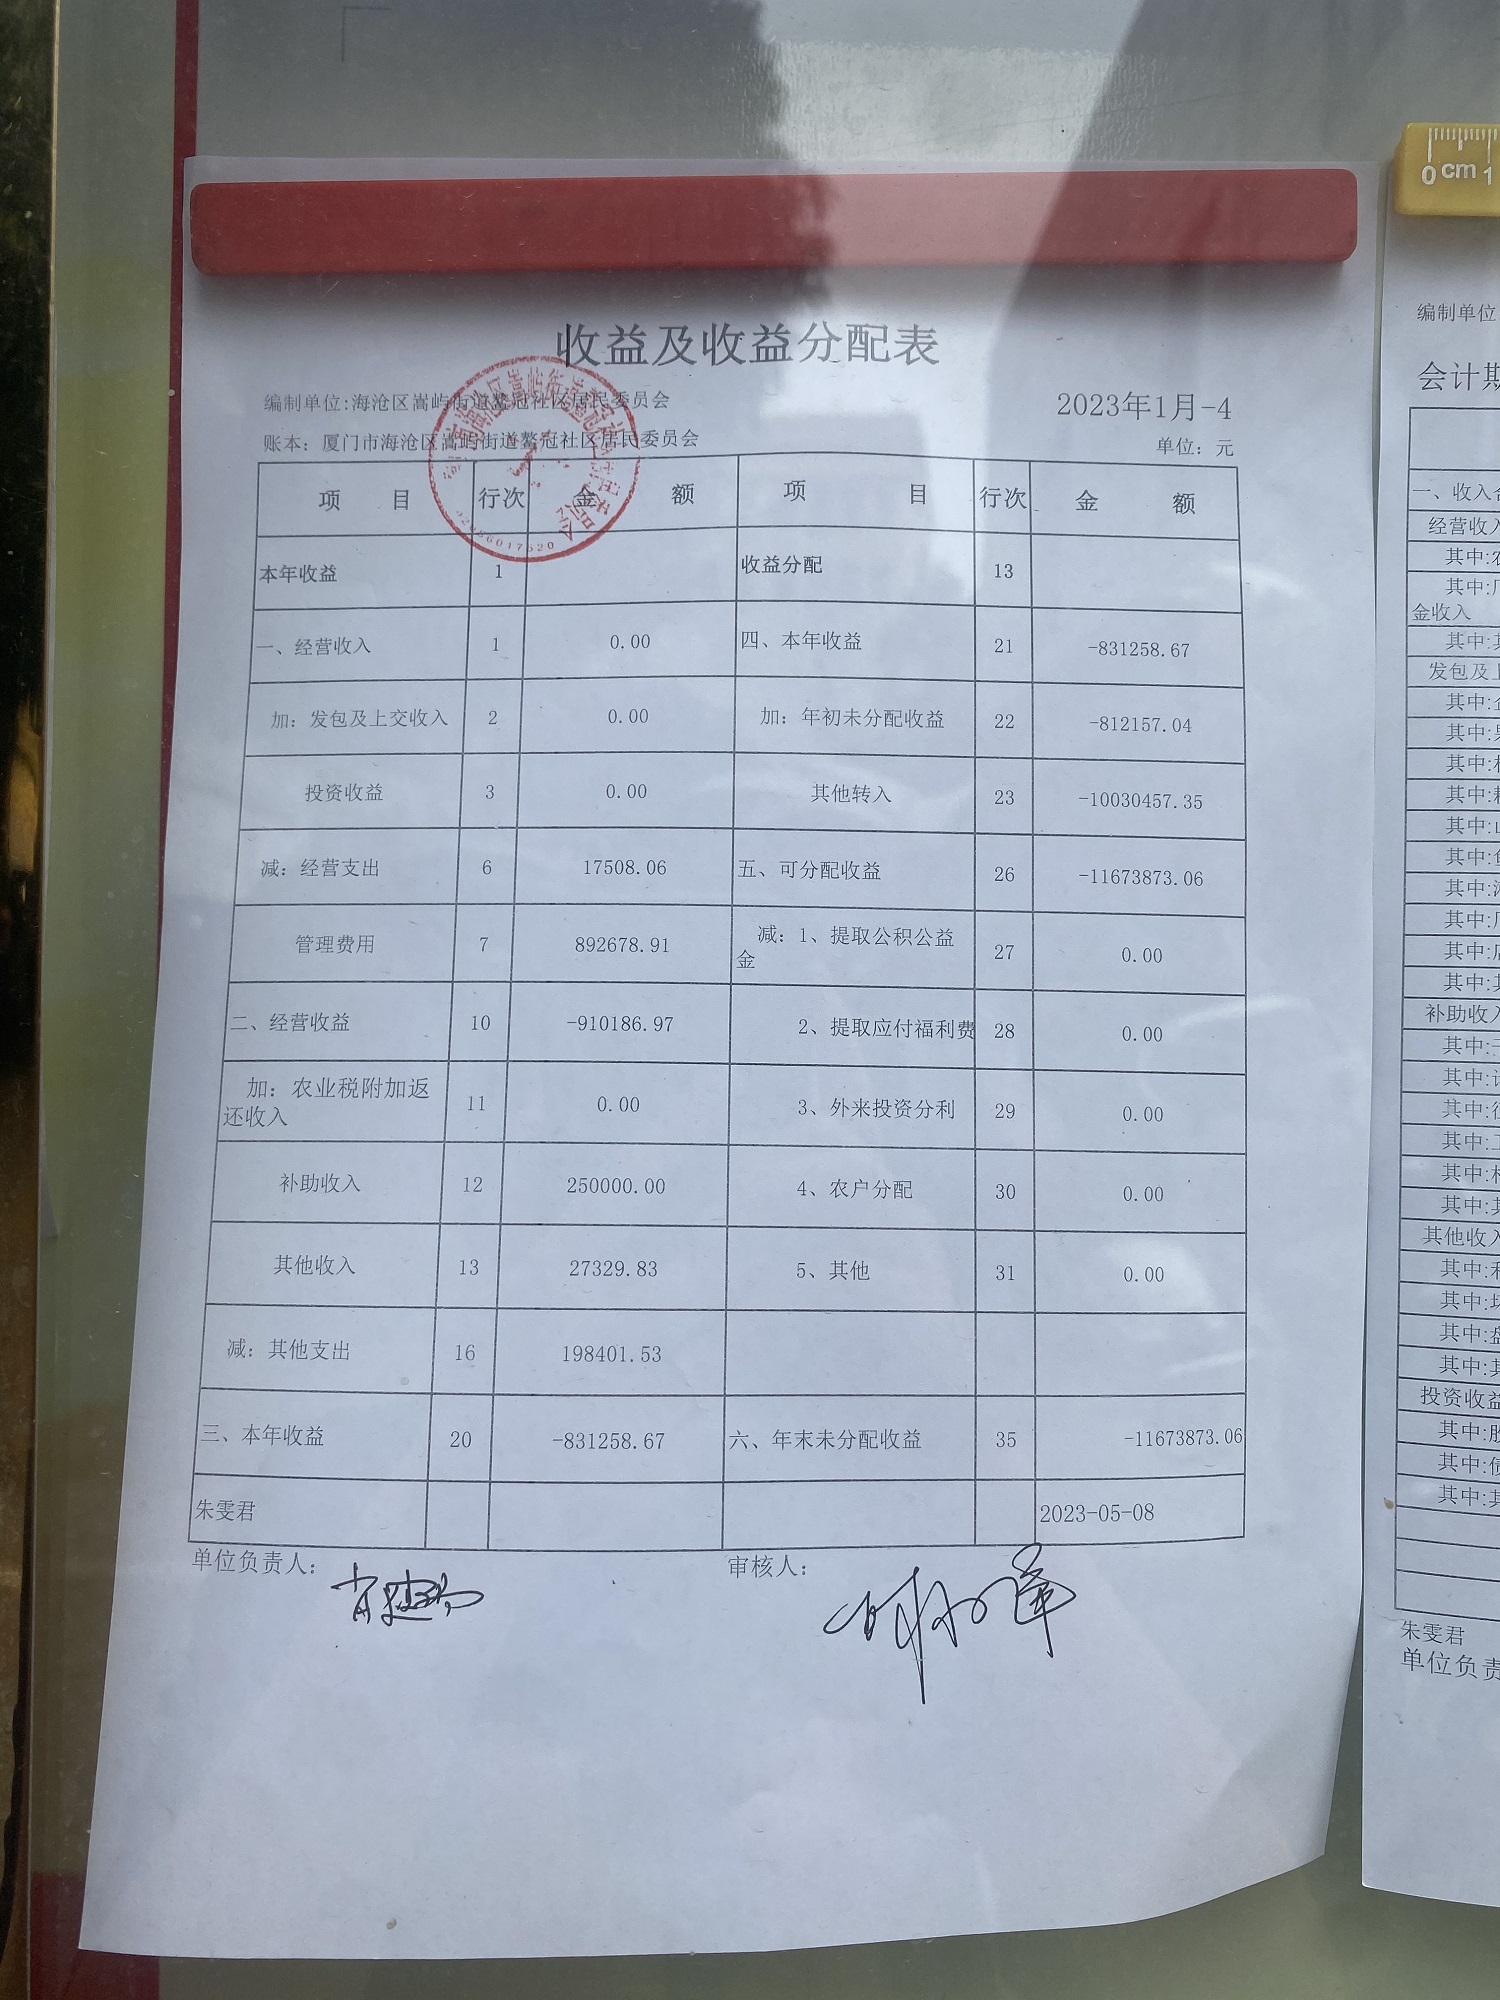 0 cm 1
收益及收益分配表
编制单位:海沧区嵩屿街道鳌冠社区居民委员会
2023年1月-4
账本：厦门市海沧区嵩屿街道鳌冠社区居民委员会
单位：元
项 目 行次 金 额 项 目 行次 金 额
本年收益 1 收益分配 13
一、经营收入 1 0.00 四、本年收益 21 -831258.67
加：发包及上交收入 2 0.00 加：年初未分配收益 22 -812157.04
投资收益 3 0.00 其他转入 23 -10030457.35
减：经营支出 6 17508.06 五、可分配收益 26 -11673873.06
管理费用 7 892678.91 减：1、提取公积公益
金 27 0.00
二、经营收益 10 -910186.97 2、提取应付福利费 28 0.00
加：农业税附加返
还收入 11 0.00 3、外来投资分利 29 0.00
补助收入 12 250000.00 4、农户分配 30 0.00
其他收入 13 27329.83 5、其他 31 0.00
减：其他支出 16 198401.53
三、本年收益 20 -831258.67 六、年末未分配收益 35 -11673873.06
朱雯君 2023-05-08
单位负责人： 审核人：
编制单位
会计期
一、收入合
经营收入
其中:农
其中:厂
金收入
其中:其
发包及上
其中:企
其中:果
其中:林
其中:耕
其中:山
其中:鱼
其中:滩
其中:厂
其中:店
其中:其
补助收入
其中:
其中:计
其中:
其中:工
其中:村
其中:其
其他收入
其中:利
其中:
其中:盘
其中:其
投资收益
其中:股
其中:债
其中:其
朱雯君
单位负责